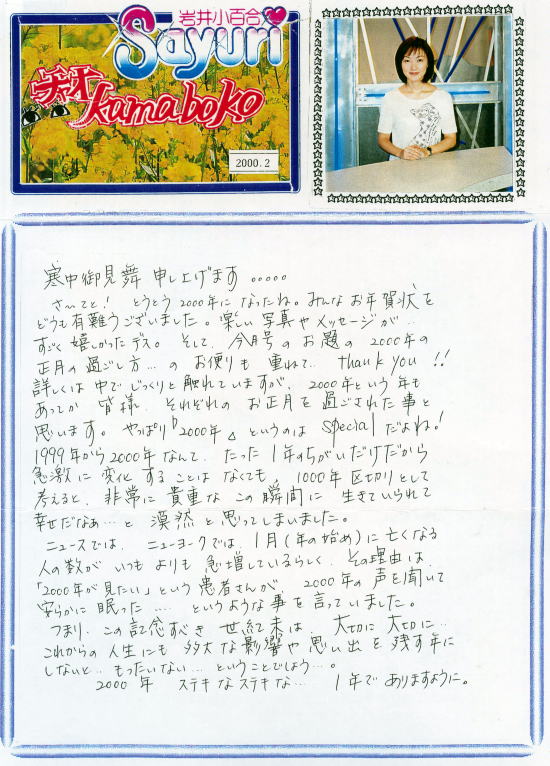 岩井小百合
Sayuri
kamaboko
2000.2
寒中御見舞 申し上げます.....
さ〜てと! とうとう 2000年に なったね。みんな お年賀状を
どうも有難うございました。楽しい写真やメッセージが..
すごく嬉しかったデス。そして、今月号の お題の 2000年の
正月の過ごし方...の お便りも 重ねて.. thank you !!
詳しくは 中で じっくりと 触れていますが、2000年という年も
あってか 皆様、それぞれの お正月を過ごされた事と
思います。やっぱり 2000年 というのは special だよね!
1999年から2000年なんて、たった 1年のちがいだけだから
急激に 変化することは なくても、1000年区切りとして
考えると、非常に 貴重な この瞬間に 生きていられて
幸せだなぁ...と 漠然と思ってしまいました。
ニュースでは、ニューヨークでは、1月(年の始め)に亡くなる
人の数が いつもよりも 急増しているらしく、その理由は、
「2000年が見たい」という患者さんが、2000年の声を聞いて
安らかに眠った.... というような事を言っていました。
つまり、この記念すべき 世紀末は 大切に 大切に...
これからの人生にも 多大な影響や思い出を残す年に
しないと.. もったいない... ということでしょう...。
2000年 ステキなステキな... 1年でありますように。